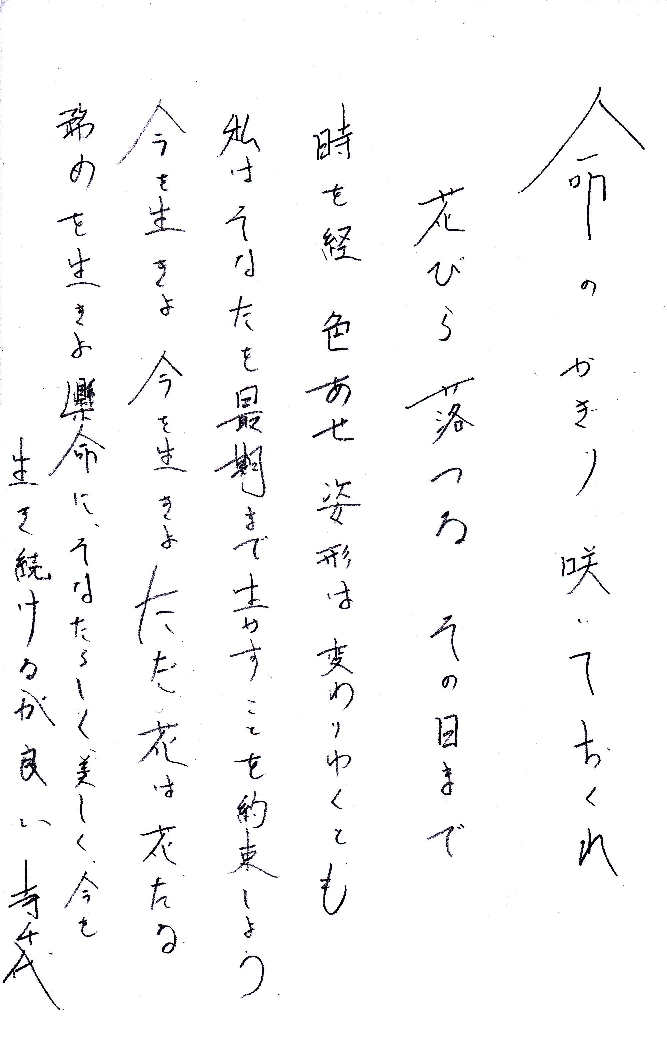 命のかぎり 咲いておくれ
花びら落つる その日まで
時を経 色あせ 姿形は 変わりゆくとも
私はそなたを最期まで生かすことを約束しよう
今を生きよ 今を生きよ ただ花は花たる
務めを生きよ 懸命に、そなたらしく、美しく、今を
生き続けるが良い 寺千代